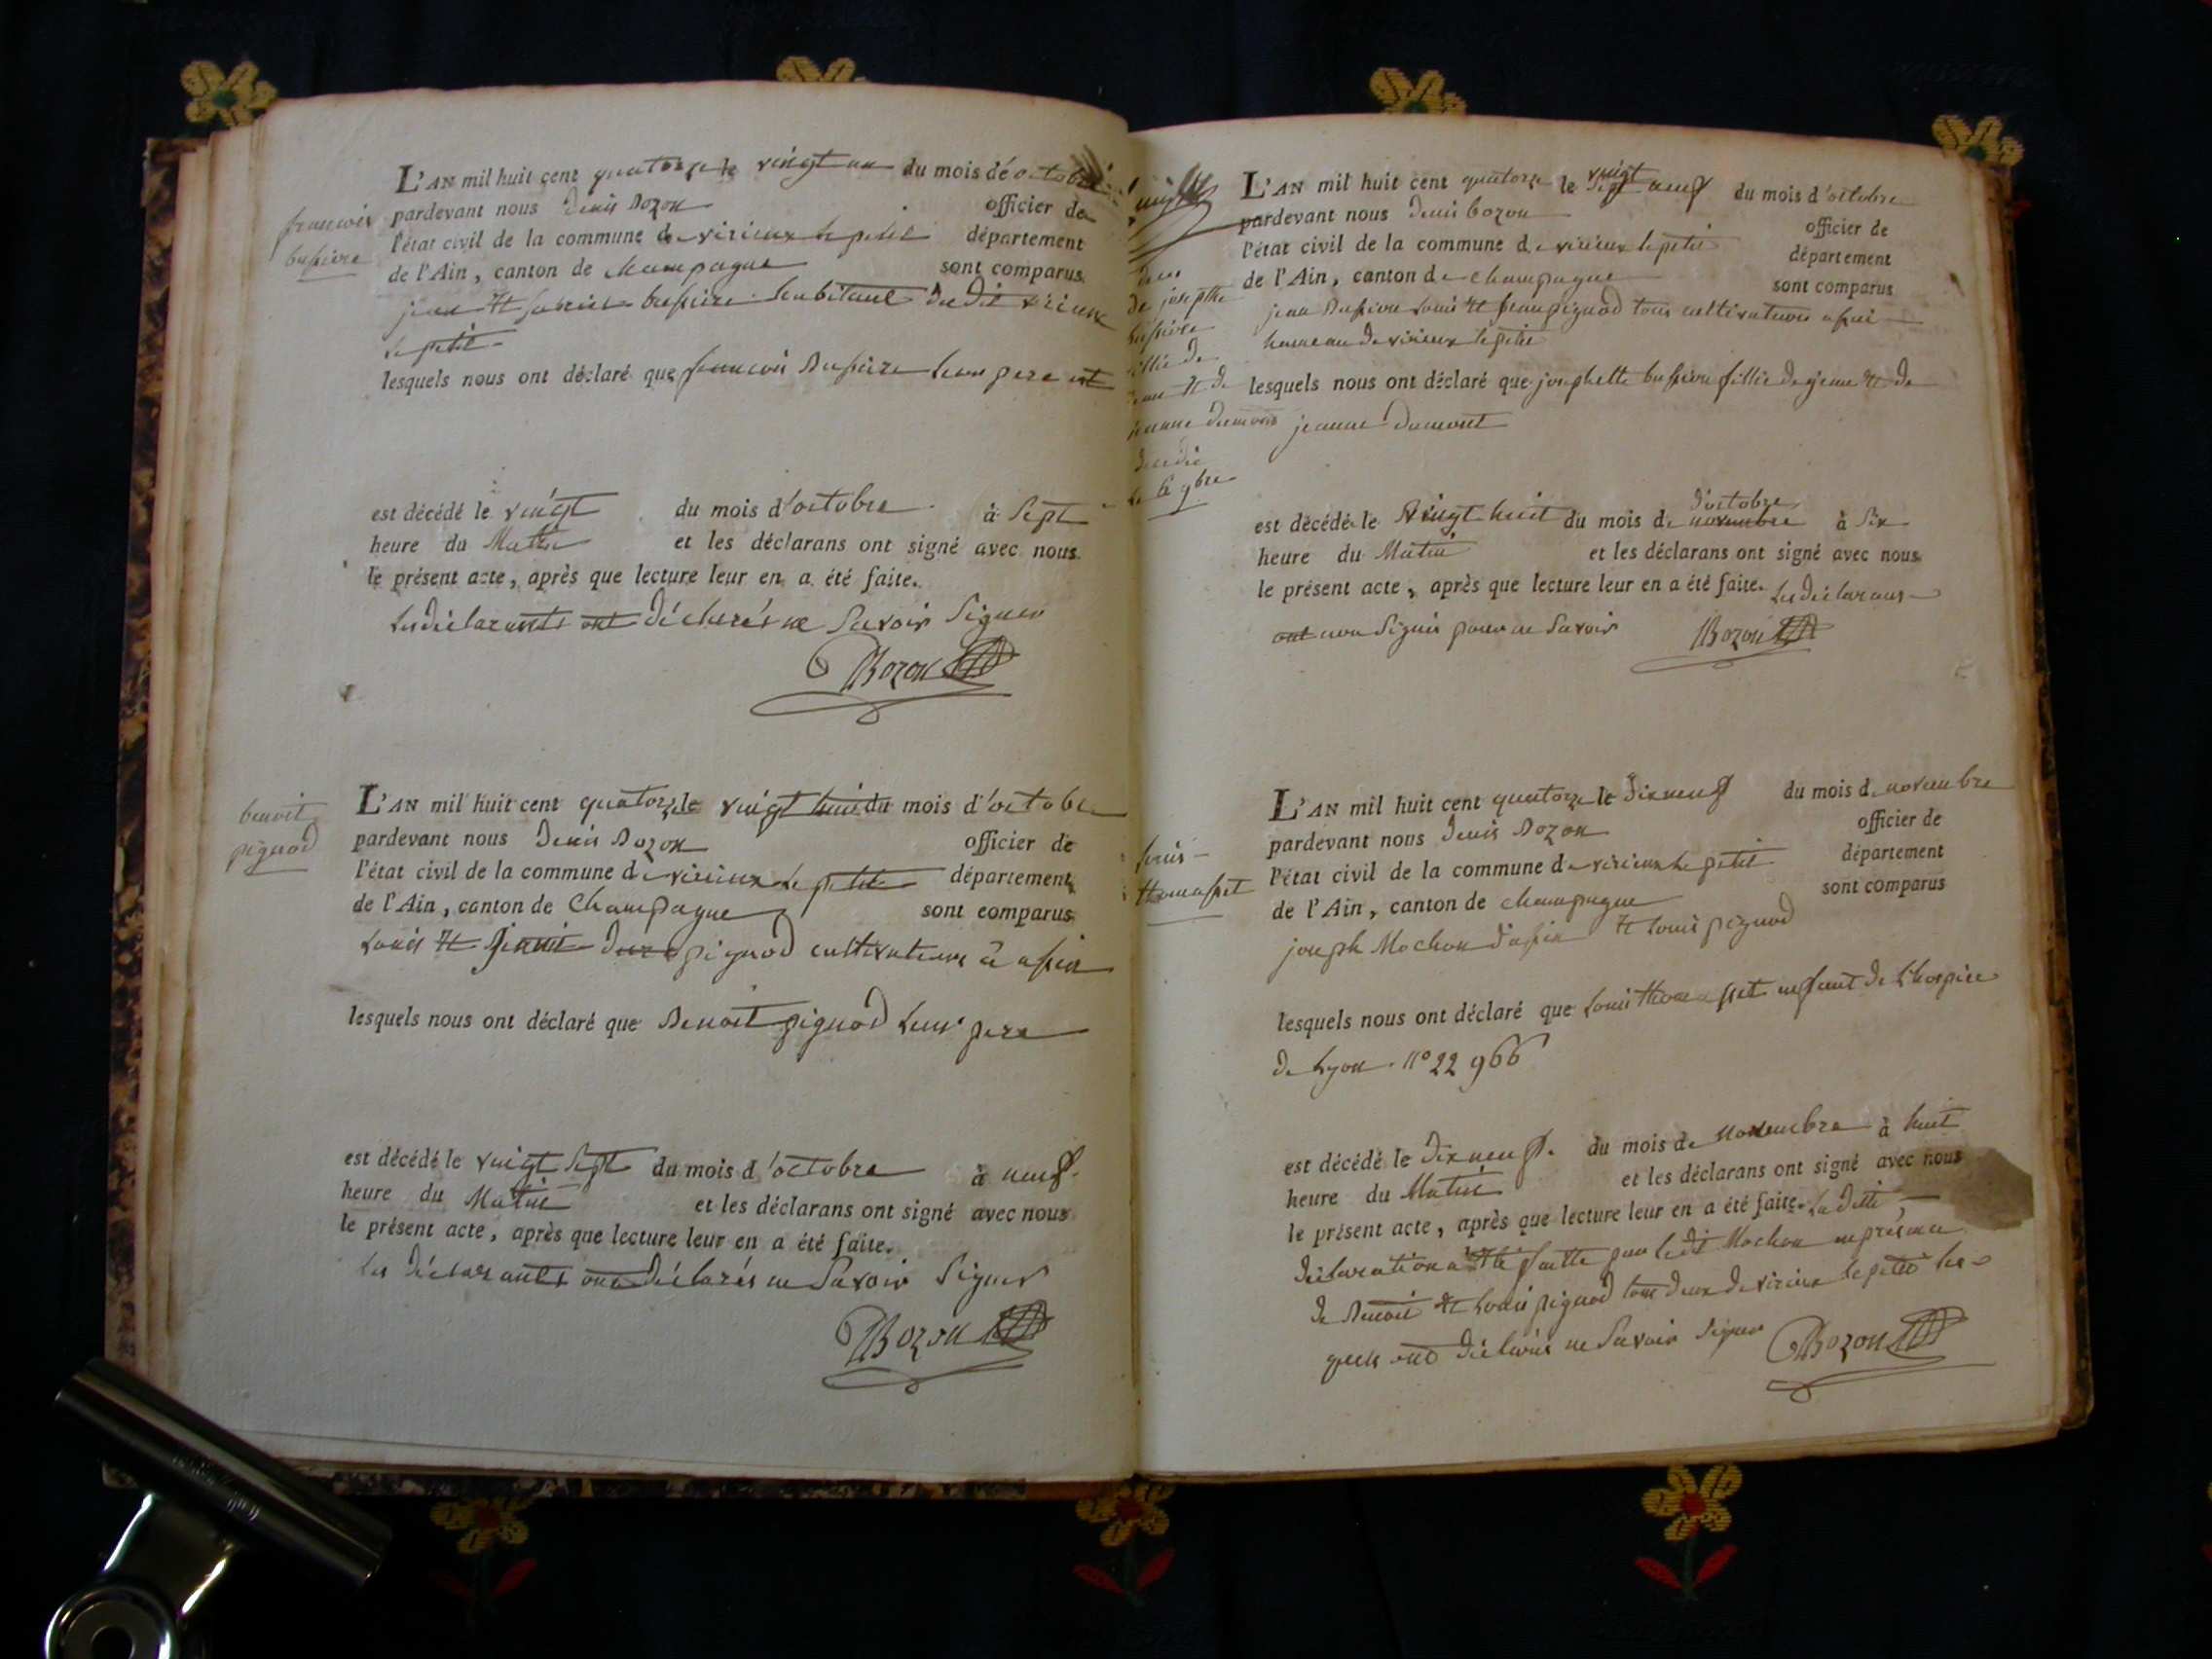 françois
bussiere
L'AN mil huit cent quatorze le vingt un du mois d'octobre
pardevant nous Denis Bozon officier de
l'état civil de la commune de virieux le petit département
de l'Ain, canton de Champagne sont comparus
jean et bussiere habitant du dit virieux
le petit
lesquels nous ont déclaré que françois Bussiere leur pere est
est décédé le vingt du mois d'octobre à sept
heure du Matin et les déclarans ont signé avec nous
le présent acte, après que lecture leur en a été faite.
les déclarants ont déclarés ne Savoir Signer
Bozon
benoit
pignod
L'AN mil huit cent quatorze le vingt huit du mois d'octobre
pardevant nous Denis Bozon officier de
l'état civil de la commune de virieux le petit département
de l'Ain, canton de Champagne sont comparus
Louis et pignod cultivateurs à assin
lesquels nous ont déclaré que Benoit pignod leur pere
est décédé le vingt sept du mois d'octobre à neuf
heure du Matin et les déclarans ont signé avec nous
le présent acte, après que lecture leur en a été faite.
les déclarants ont déclarés ne Savoir Signer
Bozon
de josephte
bussiere
fillie de
jean et de
jeanne dumont
décédé
le 6 9bre
L'AN mil huit cent quatorze le vingt neuf du mois d'octobre
pardevant nous Denis bozon officier de
l'état civil de la commune de virieux le petit département
de l'Ain, canton de Champagne sont comparus
jean Bussiere Louis et jean pignod tous cultivateurs
hameau de virieux le petit
lesquels nous ont déclaré que josephette bussiere fillie de jean et de
jeanne dumont
est décédé le vingt huit du mois de novembre d'octobre à six
heure du Matin et les déclarans ont signé avec nous
le présent acte, après que lecture leur en a été faite. les déclarans
ont non Signés pour ne Savoir Bozon
louis
thomasset
L'AN mil huit cent quatorze le dix neuf du mois de novembre
pardevant nous Denis Bozon officier de
l'état civil de la commune de virieux le petit département
de l'Ain, canton de Champagne sont comparus
joseph Mochon d'assin et Louis pignod
lesquels nous ont déclaré que Louis thomasset enfant de L'hospice
de Lyon n° 22 966
est décédé le dix neuf du mois de Novembre à huit
heure du Matin et les déclarans ont signé avec nous
le présent acte, après que lecture leur en a été faite. La ditte
déclaration a été faitte par ledit Mochon en présence
de Benoit et Louis pignod tous deux de virieux le petit les
quels ont déclarés ne Savoir Signer Bozon